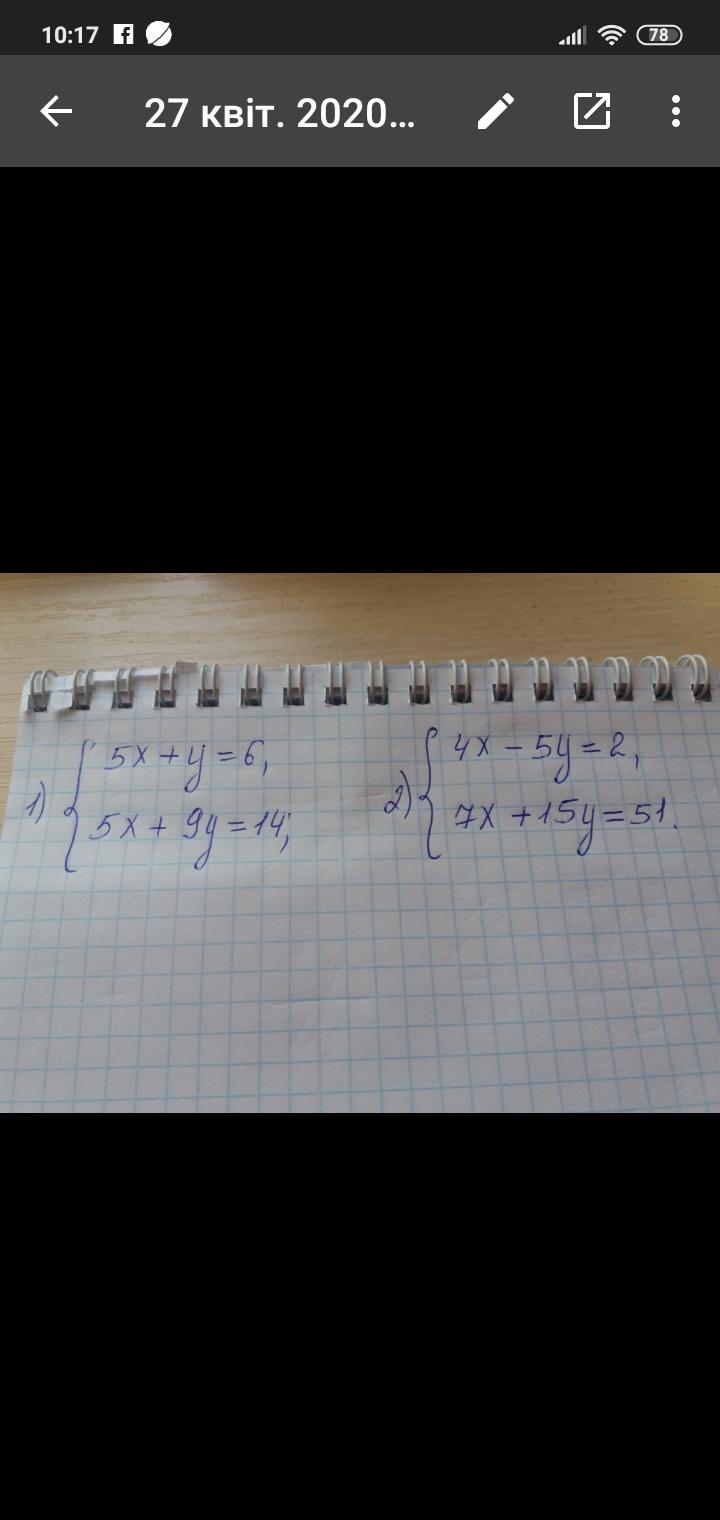 10:17 78
27 квіт. 2020...
1) { 5x + y = 6,
5x + 9y = 14;
2) { 4x - 5y = 2,
7x + 15y = 51.